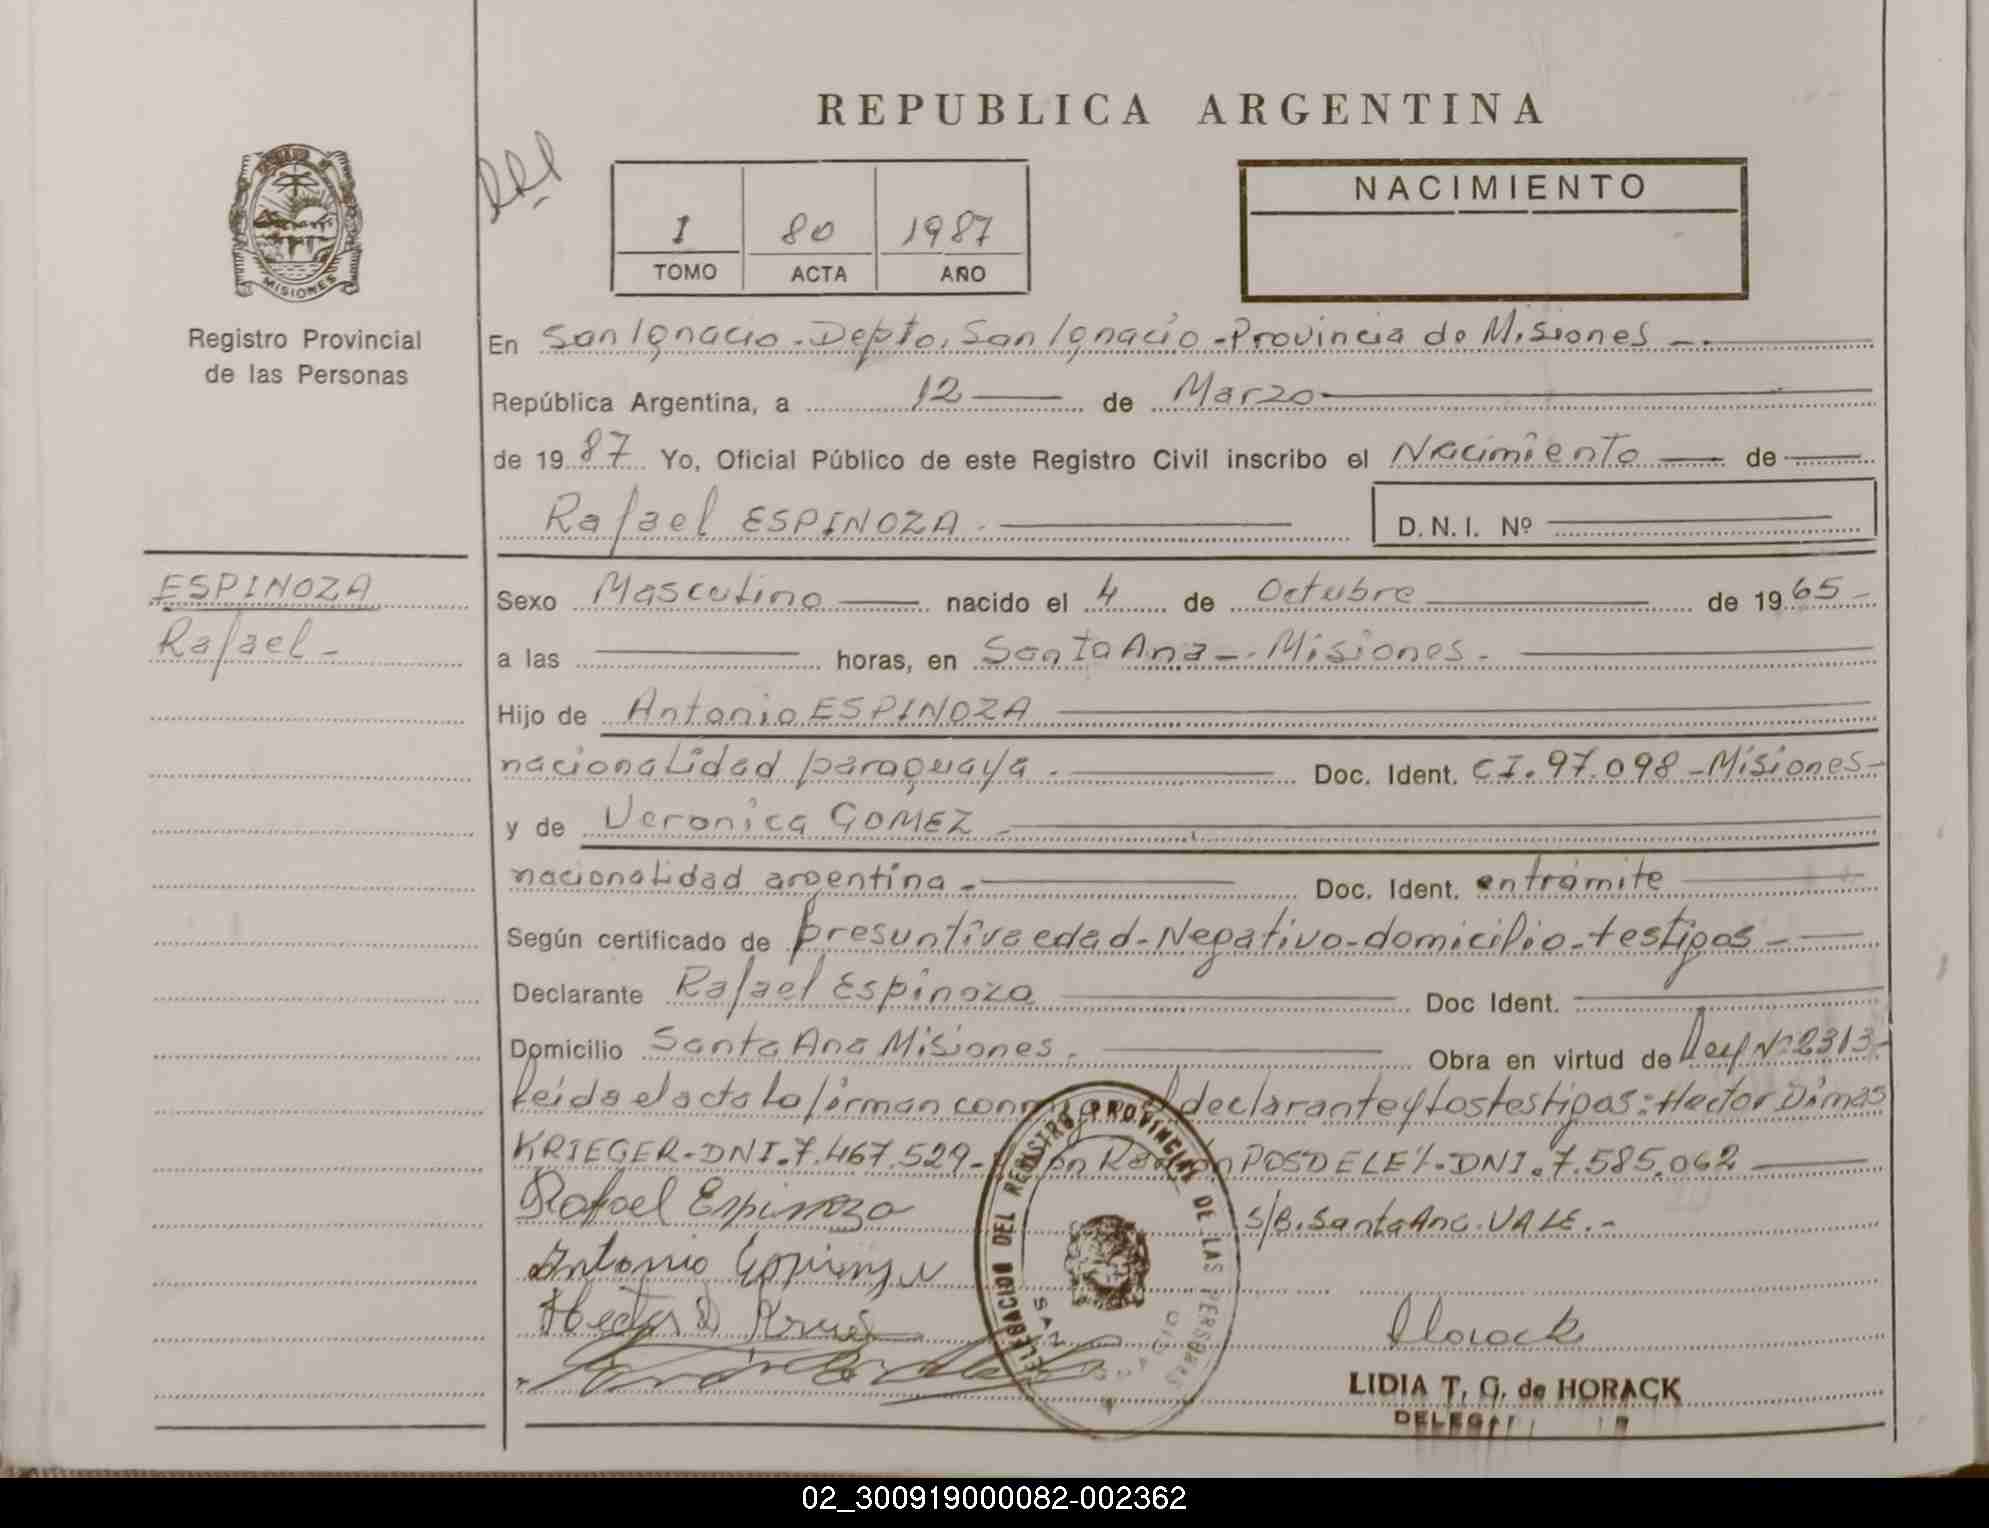 REPUBLICA ARGENTINA
MISIONES
Registro Provincial
de las Personas
I 80 1987
TOMO ACTA AÑO
NACIMIENTO
En San Ignacio - Depto. San Ignacio - Provincia de Misiones -.
República Argentina, a 12 de Marzo
de 1987 Yo, Oficial Público de este Registro Civil inscribo el Nacimiento de
Rafael ESPINOZA. D.N.I. Nº
ESPINOZA
Rafael -
Sexo Masculino nacido el 4 de Octubre de 1965 -
a las horas, en Santa Ana -. Misiones -
Hijo de Antonio ESPINOZA
nacionalidad paraguaya. Doc. Ident. CI. 97.098 - Misiones -
y de Veronica GOMEZ -
nacionalidad argentina - Doc. Ident. en trámite
Según certificado de presuntiva edad - Negativo - domicilio - testigos -
Declarante Rafael Espinoza Doc Ident.
Domicilio Santa Ana Misiones. Obra en virtud de Ley Nº 2313 -
leída el acta la firman conmigo el declarante y los testigos: Hector Dimas
KRIEGER - DNI. 7.467.529 - POSDELEY - DNI. 7.585.062
Rafael Espinoza S/B. Santa Ana. VALE. -
Antonio Espinoza
Hector D
Horack
DELEGACION DEL REGISTRO PROVINCIAL DE LAS PERSONAS
SAN IGNACIO
LIDIA T. G. de HORACK
02_300919000082-002362